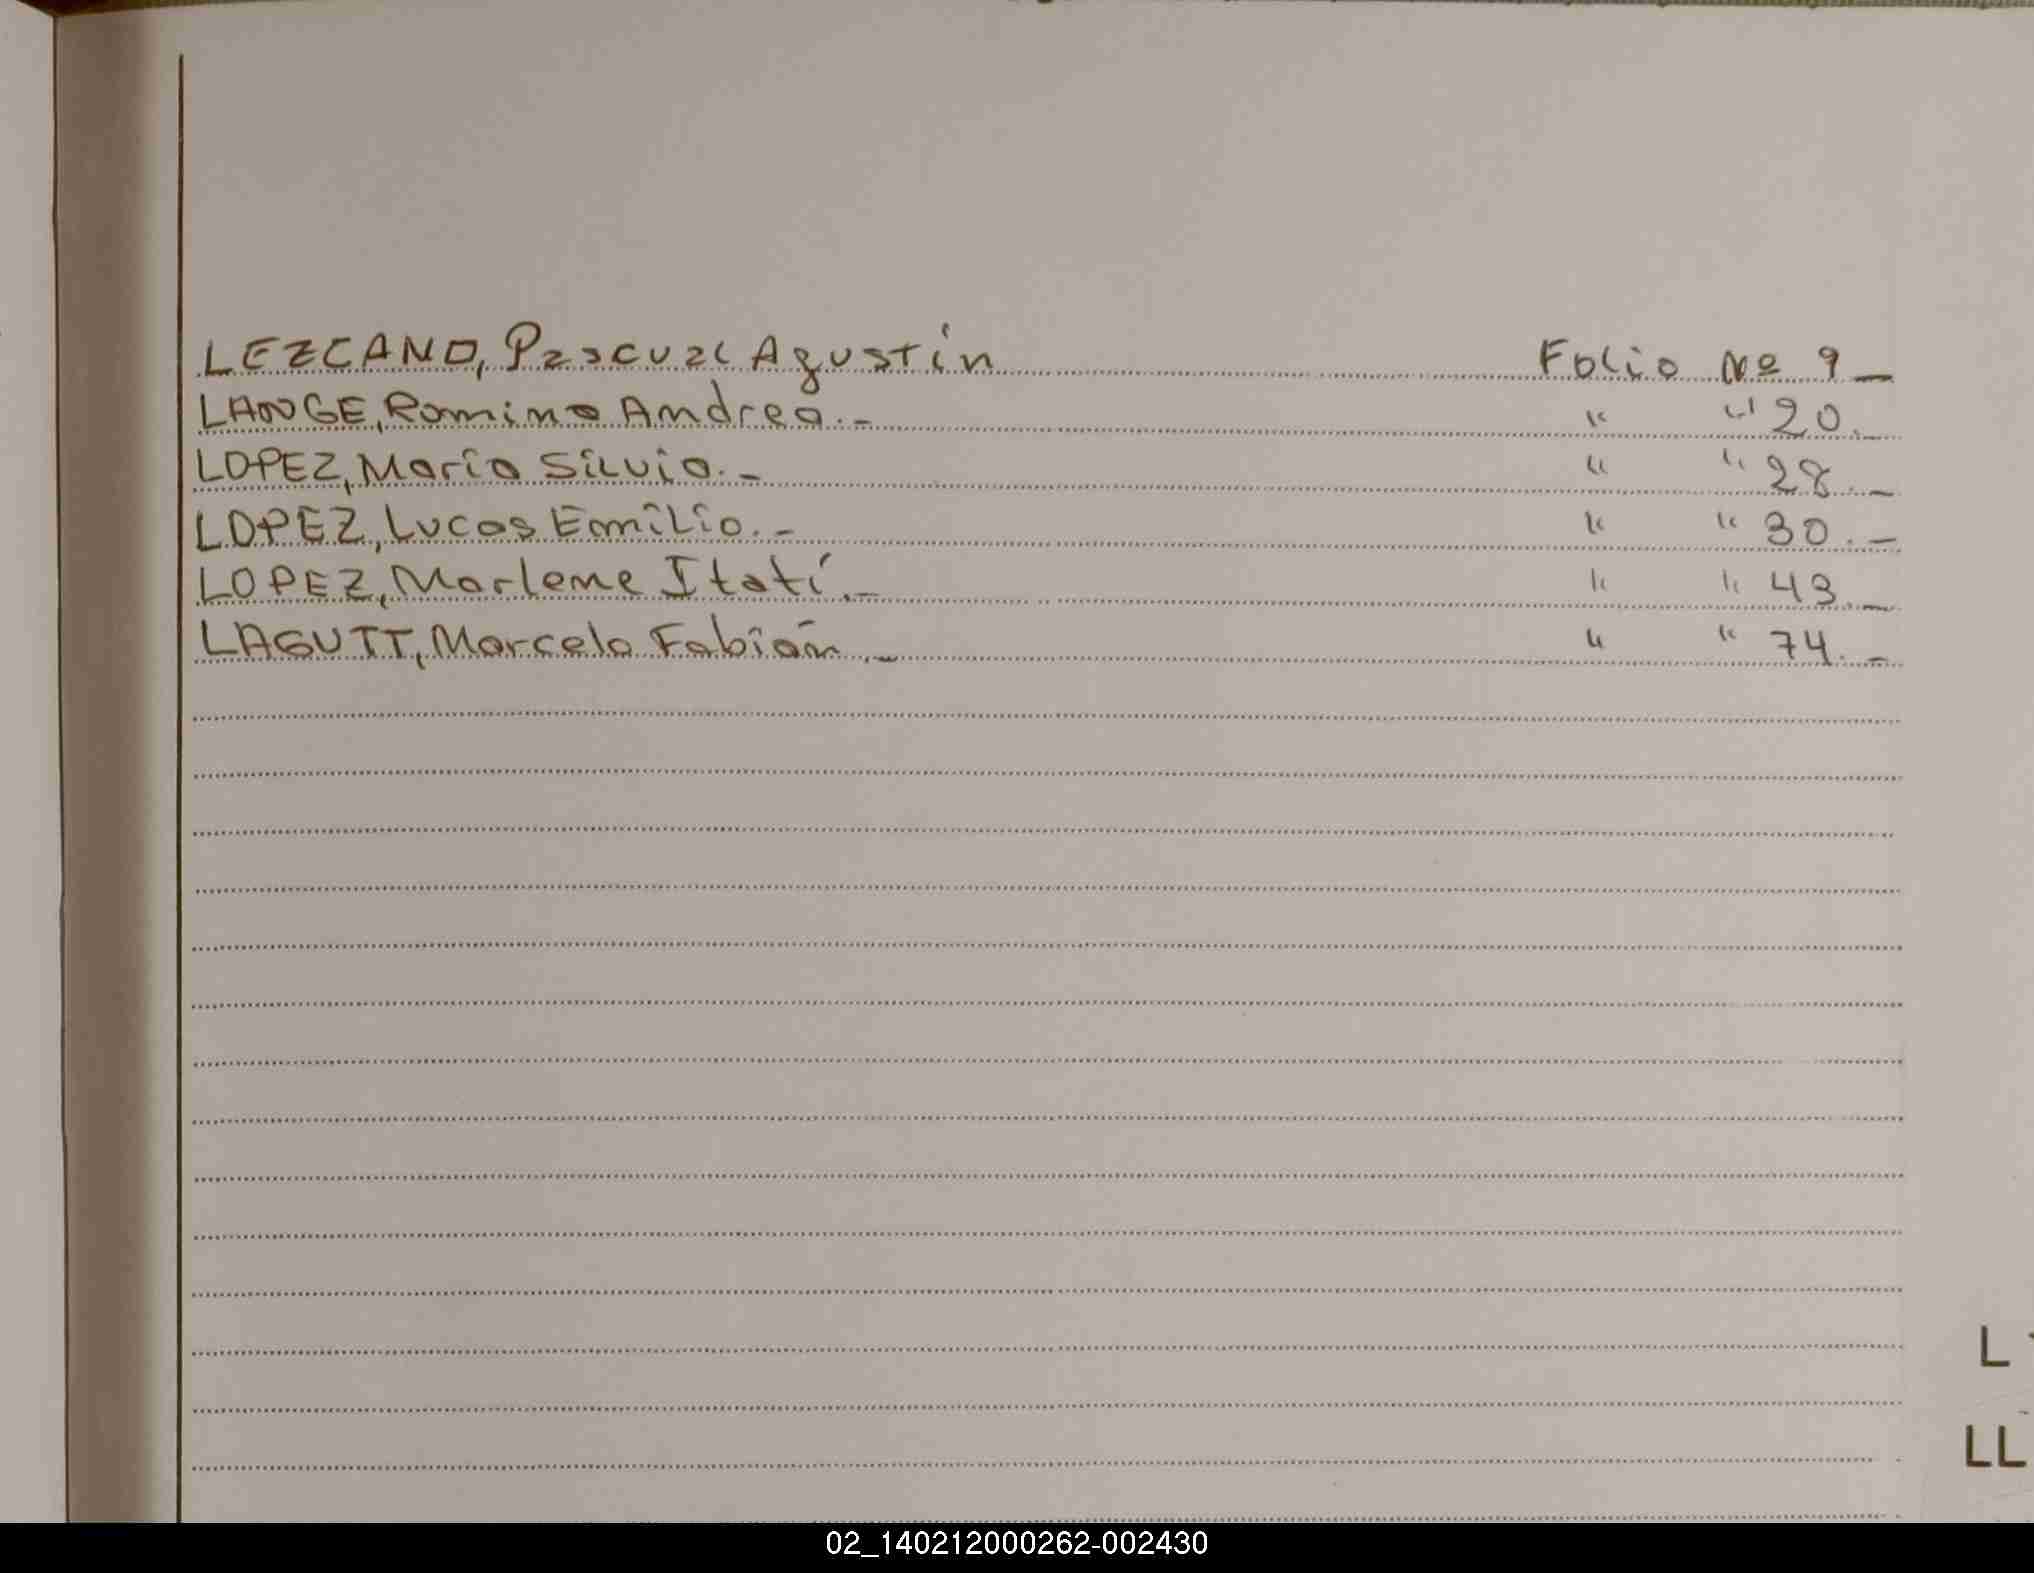 LEZCANO, Pascual Agustín Folio Nº 9_
LANGE, Romina Andrea._ " " 20._
LOPEZ, María Silvia._ " " 28._
LOPEZ, Lucas Emilio._ " " 30._
LOPEZ, Marlene Itatí._ " " 43._
LAGUTT, Marcelo Fabián._ " " 74._
L
LL
02_140212000262-002430